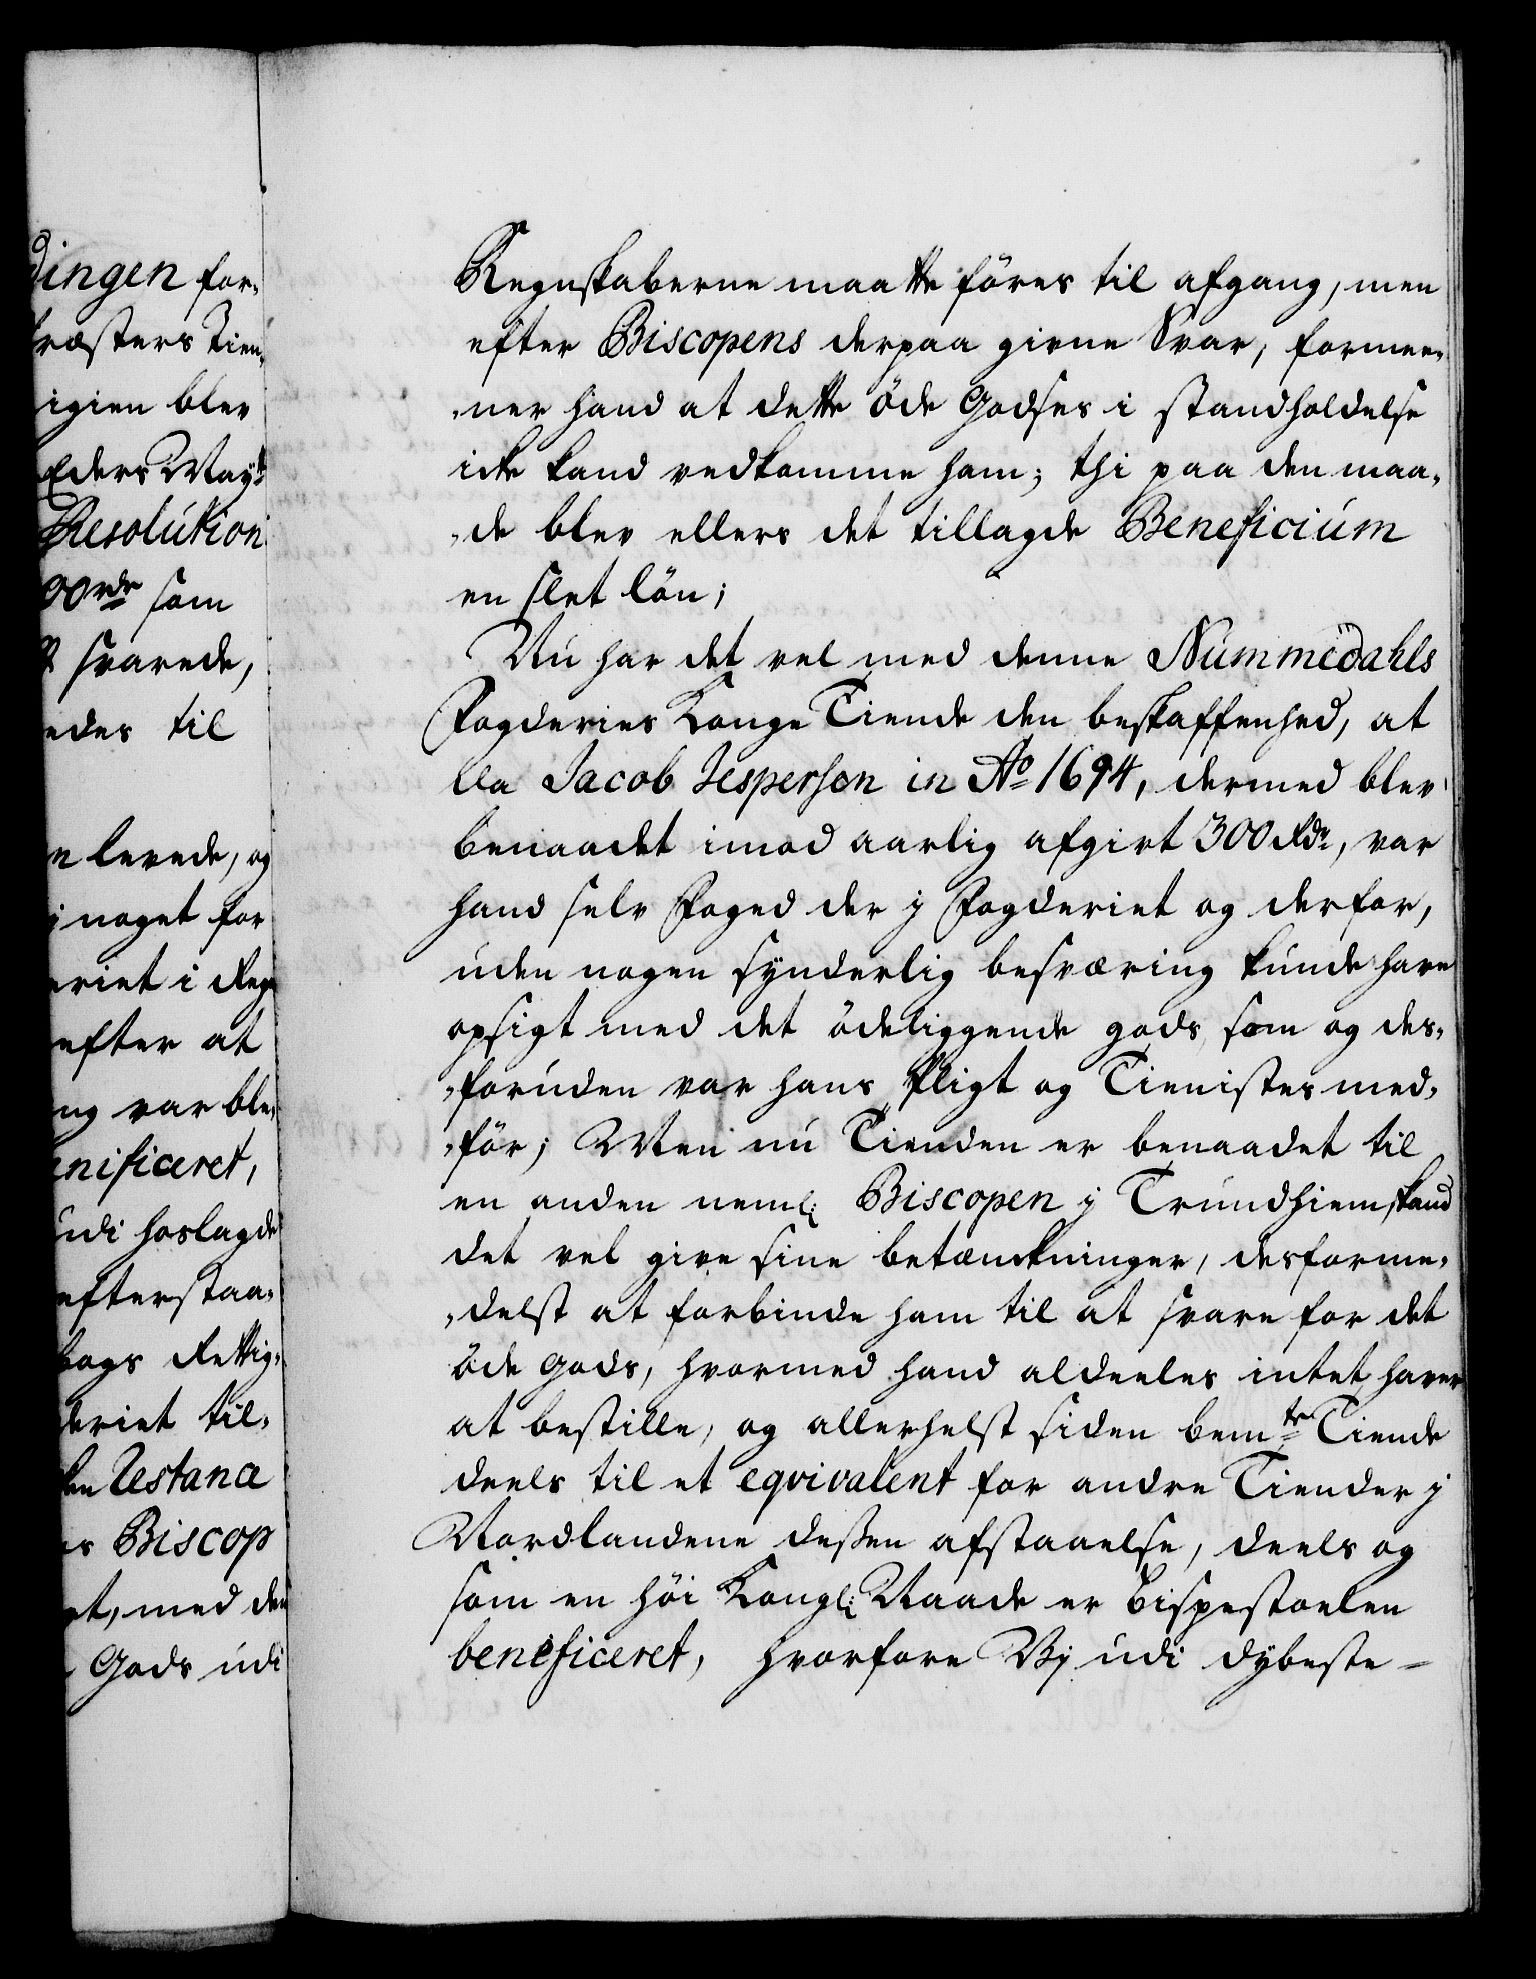 dingen for-
ræsters Tien-
igien blev
Eders Maytt
Resolution
00 rdr som
svarede,
edes til
n levede, og
noget for
eriet i Reg-
efter at
ng var ble-
nificeret,
udi hoslagde
efterstaa-
bogs Rettig-
deriet til-
den Testana
es Biscop
et, med den
Gods udi
Regnskaberne maatte föres til afgang, men
efter Biscopens derpaa givne Svar, formee-
-ner hand at dette öde Godses i standholdelse
icke kand vedkomme ham; thi paa den maa-
-de blev ellers det tillagde Beneficium
en slet lön;
Nu har det vel med denne Nummedahls
Fogderies Konge Tiende den beskaffenhed, at
da Jacob Jespersen in Ao 1694, dermed blev
benaadet imod aarlig afgivt 300 Rdr, var
hand selv Foged der j Fogderiet og derfor,
uden nogen synderlig besværing kunde have
opsigt med det ödeliggende gods, som og des-
-foruden var hans Pligt og Tienistes med-
-för; Men nu Tienden er benaadet til
en anden neml: Biscopen j Trundhiem, kand
det vel give sine betænckninger, desforme-
-delst at forbinde ham til at svare for det
öde Gods, hvormed hand aldeeles intet haver
at bestille, og allerhelst siden bemte Tiende
deels til et eqvivalent for andre Tiender j
Nordlandene dessen afstaaelse, deels og
som en höi Kongl: Naade er Bispestoelen
beneficeret, hvorfore Vj udi dybeste-